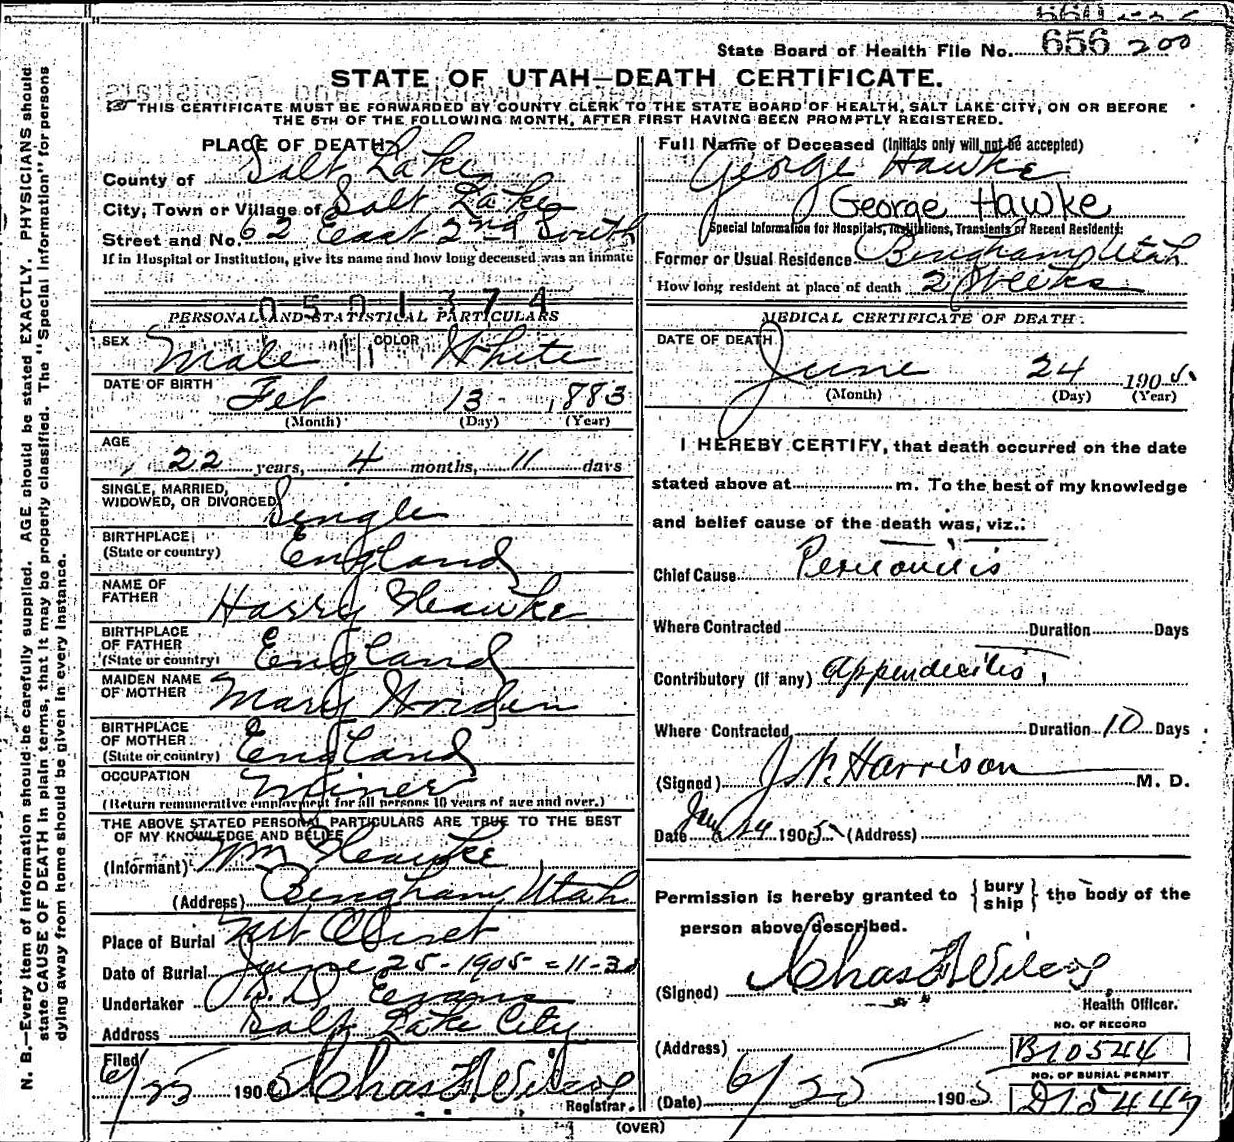 State Board of Health File No. 656 200
STATE OF UTAH—DEATH CERTIFICATE.
THIS CERTIFICATE MUST BE FORWARDED BY COUNTY CLERK TO THE STATE BOARD OF HEALTH, SALT LAKE CITY, ON OR BEFORE
THE 5TH OF THE FOLLOWING MONTH, AFTER FIRST HAVING BEEN PROMPTLY REGISTERED.
PLACE OF DEATH
County of Salt Lake
City, Town or Village of Salt Lake
Street and No. 62 East 2nd South
If in Hospital or Institution, give its name and how long deceased was an inmate
0501374
PERSONAL AND STATISTICAL PARTICULARS
SEX Male COLOR White
DATE OF BIRTH Feb 13 1883
(Month) (Day) (Year)
AGE
22 years, 4 months, 11 days
SINGLE, MARRIED,
WIDOWED, OR DIVORCED Single
BIRTHPLACE
(State or country) England
NAME OF
FATHER Harry Hawke
BIRTHPLACE
OF FATHER
(State or country) England
MAIDEN NAME
OF MOTHER Mary Horden
BIRTHPLACE
OF MOTHER
(State or country) England
OCCUPATION Miner
(Return remunerative employment for all persons 10 years of age and over.)
THE ABOVE STATED PERSONAL PARTICULARS ARE TRUE TO THE BEST
OF MY KNOWLEDGE AND BELIEF
(Informant) Wm Hawke
(Address) Bingham, Utah
Place of Burial Mt Olivet
Date of Burial June 25-1905-11-30
Undertaker Evans
Address Salt Lake City
Filed
6/25 1905 Chas F Wilcox
Registrar.
Full Name of Deceased (Initials only will not be accepted)
George Hawke
George Hawke
Special Information for Hospitals, Institutions, Transients or Recent Residents:
Former or Usual Residence Bingham, Utah
How long resident at place of death 2 Weeks
MEDICAL CERTIFICATE OF DEATH
DATE OF DEATH
June 24 1905
(Month) (Day) (Year)
I HEREBY CERTIFY, that death occurred on the date
stated above at m. To the best of my knowledge
and belief cause of the death was, viz.:
Chief Cause Peritonitis
Where Contracted Duration Days
Contributory (if any) Appendecitis
Where Contracted Duration 10 Days
(Signed) Harrison M. D.
Date 24 1905 (Address)
Permission is hereby granted to { bury
ship } the body of the
person above described.
(Signed) Chas F Wilcox
Health Officer.
(Address)
NO. OF RECORD
B10544
NO. OF BURIAL PERMIT
D15447
(Date) 6/25 1905
(OVER)
N. B.—Every item of information should be carefully supplied. AGE should be stated EXACTLY. PHYSICIANS should
state CAUSE OF DEATH in plain terms, that it may be properly classified. The "Special Information" for persons
dying away from home should be given in every instance.